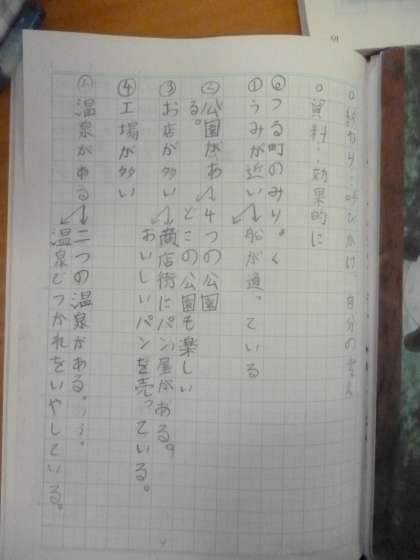 ○終わり…呼びかけ、自分の考え
○資料…効果的に
◎つる町のみりょく
①うみが近い→船が通っている
②公園がある。→4つの公園
どこの公園も楽しい
③お店が多い→商店街にパン屋がある。
おいしいパンを売っている。
④工場が多い
⑤温泉がある→二つの温泉がある。
温泉でつかれをいやしている。